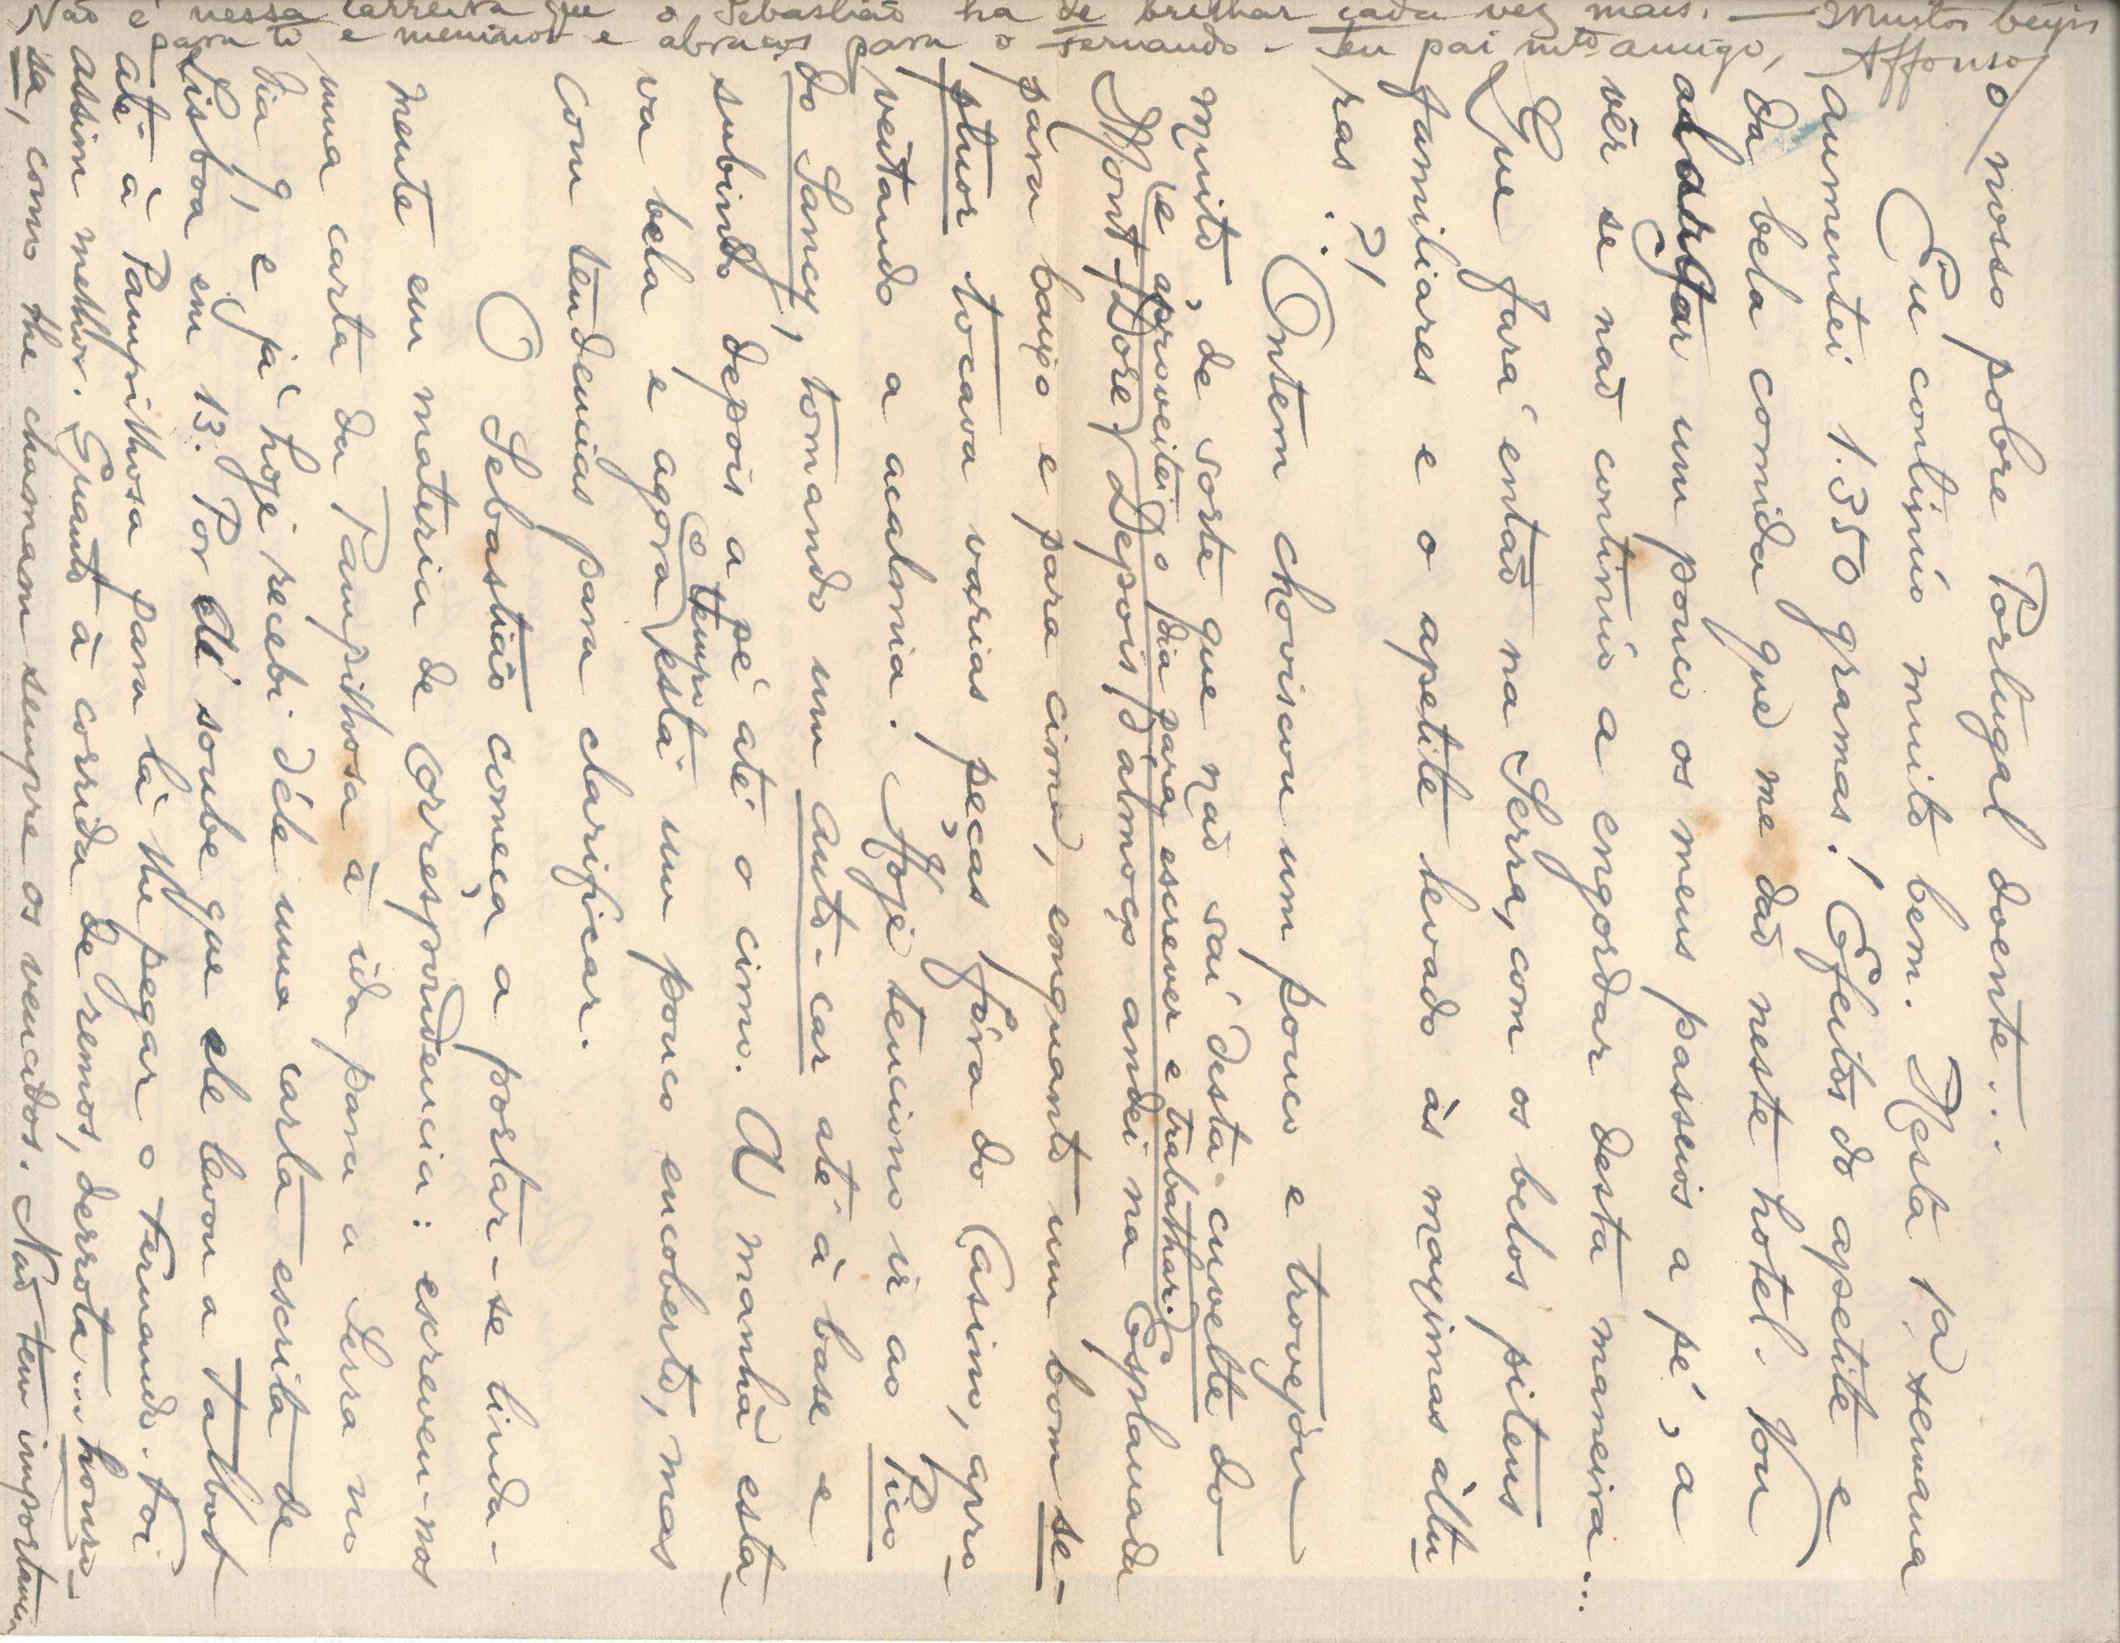 o nosso pobre Portugal doente...
Eu continúo muito bem. Nesta 1ª semana
aumentei 1.350 gramas! Efeitos do apetite e
da bela comida que me dão neste hotel. Vou
alargar um pouco os meus passeios a pé, a
vêr se não continúo a engordar desta maneira...
Que fará então na Serra, com os belos piteus
familiares e o apetite levado às maximas altu-
ras..?!
Ontem choviscou um pouco e trovejou
muito, de sorte que não saí desta cuvette do
Mont-Dore (e aproveitei o dia para escrever e trabalhar). Depois d'almoço andei na Esplanada
para baixo e para cima, enquanto um bom se-
ptuor tocava varias peças fóra do Casino, apro-
veitando a acalmia. Hoje tenciono ir ao Pico
do Sancy, tomando um auto-car até à base e
subindo depois a pé até o cimo. A manhã esta-
va bela e agora o tempo está um pouco encoberto, mas
com tendencias para clarificar.
O Sebastião começa a portar-se linda-
mente em materia de correspondencia: escreveu-nos
uma carta da Pampilhosa à ida para a Serra no
dia 9, e já hoje recebi dêle uma carta escrita de
Lisboa em 13. Por ela soube que ele levou a Talbot
até à Pampilhosa para lá lhe pegar o Fernando. Foi
assim melhor. Quanto à corrida de remos, derrota... honro-
sa, como lhe chamam sempre os vencidos. Não tem importancia
Não é nessa carreira que o Sebastião ha de brilhar cada vez mais. — Muitos beijos
para ti e meninos e abraços para o Fernando - Teu pai mto amigo, Affonso